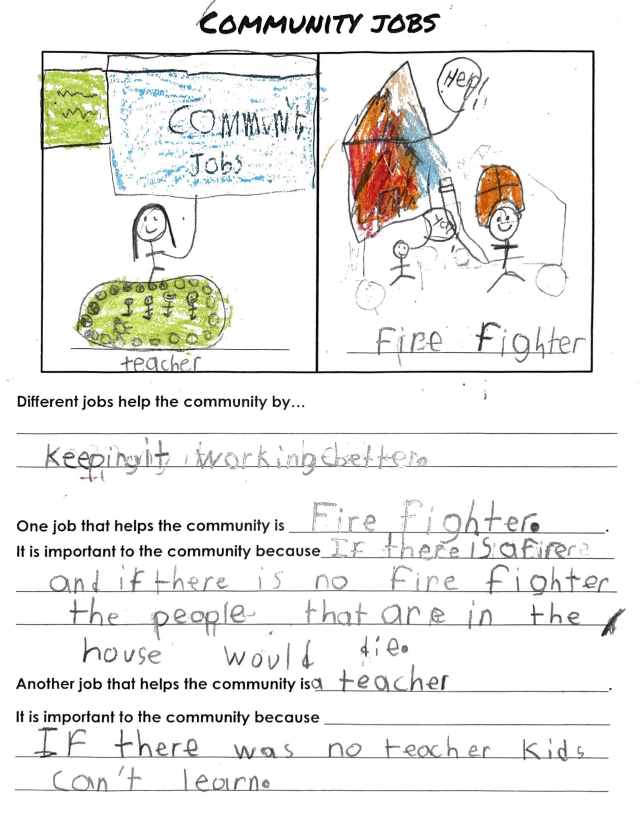 COMMUNITY JOBS
COMMUNITY
JOBS
Help!
teacher
Fire fighter
Different jobs help the community by...
Keeping it working better.
One job that helps the community is Fire fighter.
It is important to the community because If there is a fire
and if there is no fire fighter
the people that are in the
house would die.
Another job that helps the community is a teacher.
It is important to the community because
IF there was no teacher kids
can't learn.